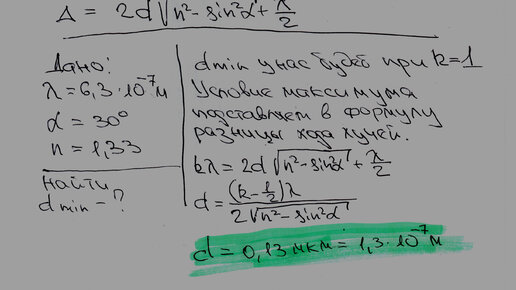 Δ = 2d√n²-sin²α + λ/2
Дано:
λ = 6,3·10⁻⁷м
α = 30°
n = 1,33
Найти
dmin - ?
dmin у нас будет при k=1
Условие максимума
подставляем в формулу
разницы хода лучей.
kλ = 2d√n²-sin²α + λ/2
d = (k-1/2)λ / 2√n²-sin²α
d = 0,13 мкм = 1,3·10⁻⁷ м